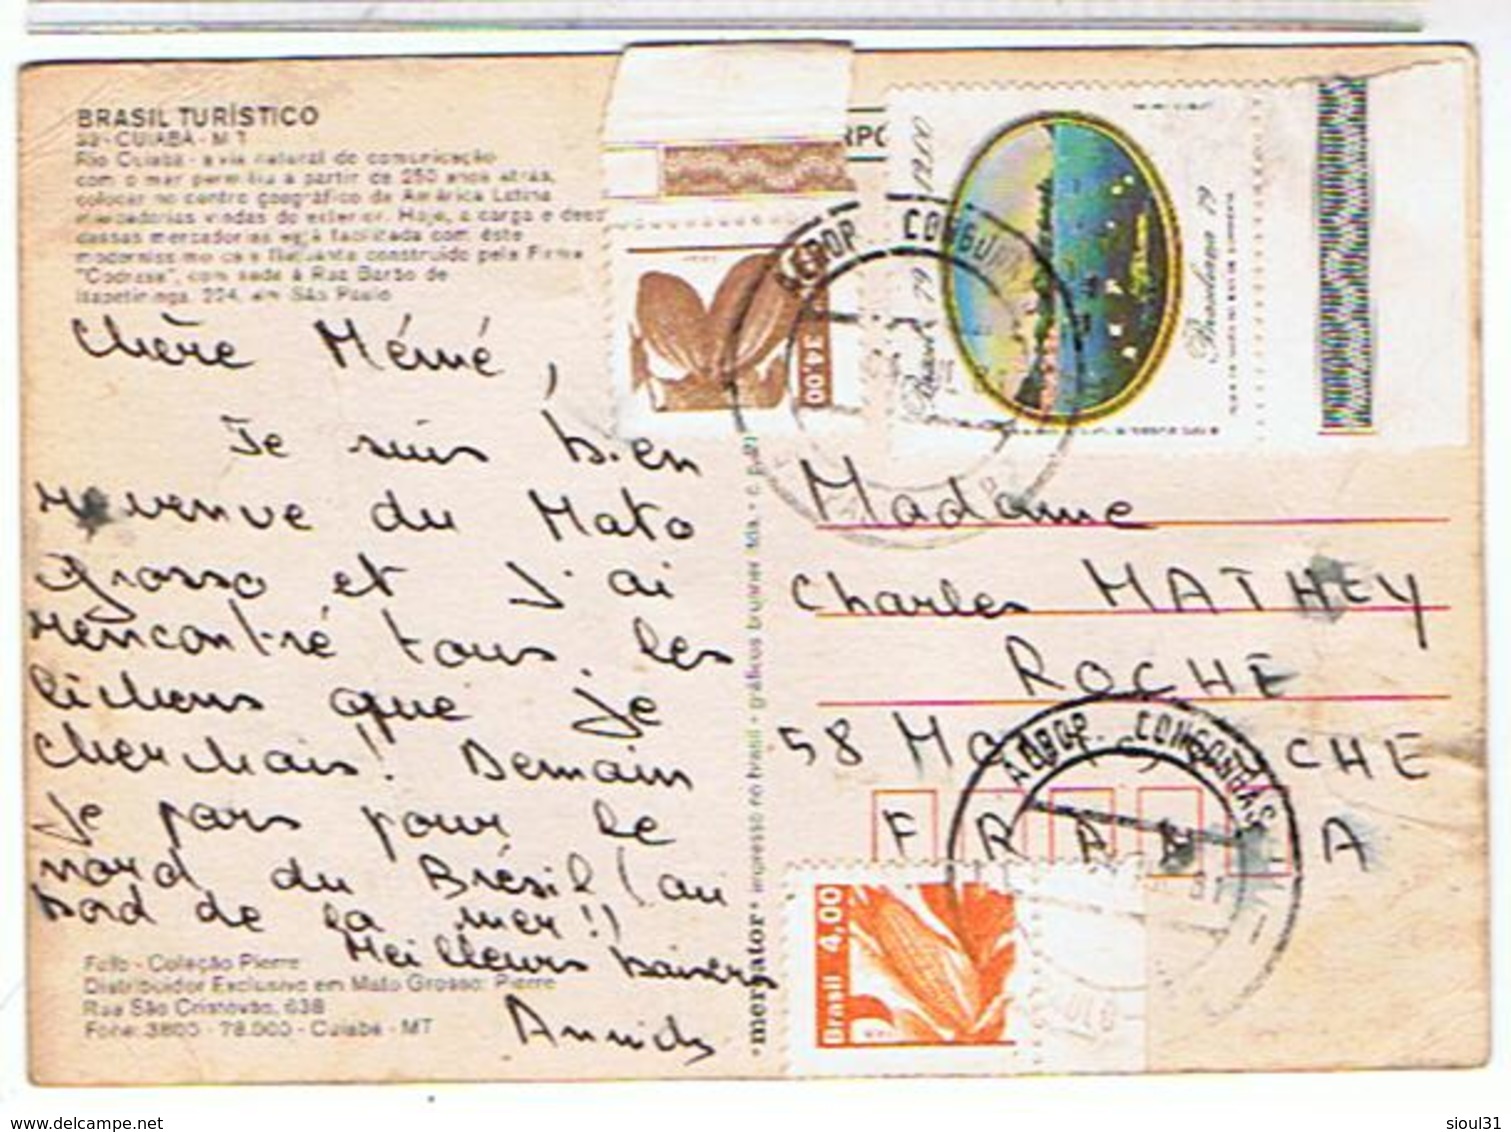 BRASIL TURÍSTICO
53 - CUIABÁ - MT
Rio Cuiabá - a via natural de comunicação
com o mar permitiu a partir de 250 anos atrás,
colocar no centro geográfico da América Latina
mercadorias vindas do exterior. Hoje, a carga e
dessas mercadorias está facilitada com êste
construido pela Firma
"Codrasa", com sede à Rua Barão de
Itapetininga, 224, em São Paulo
Chère Mémé,
Je suis bien
revenue du Mato
grosso et j'ai
rencontré tous les
lichens que je
cherchais! Demain
je pars pour le
nord du Brésil (au
bord de la mer!!
Meilleurs baisers
Foto - Coleção Pierre
Distribuidor Exclusivo em Mato Grosso: Pierre
Rua São Cristovão, 638
Fone: 3800 - 78.000 - Cuiabá - MT
•mercator• impresso no brasil • gráficos brunner ltda. •
34,00
12,00
Brasil 79
Brasiliana 79
AEROP. CONGONHAS
Madame
Charles MATHEY
ROCHE
58
FRA
AEROP. CONGONHAS
Brasil 4,00
sioul31